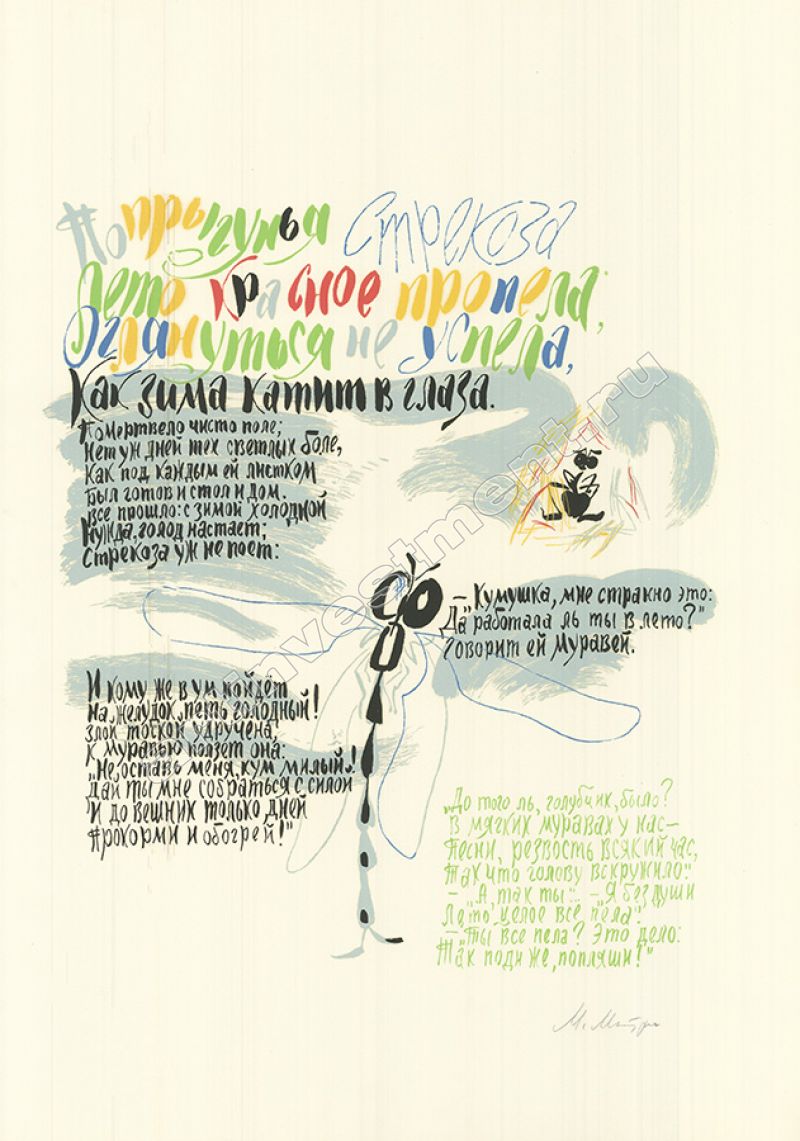 Попрыгунья Стрекоза
Лето красное пропела;
Оглянуться не успела,
Как зима катит в глаза.
Помертвело чисто поле;
Нет уж дней тех светлых боле,
Как под каждым ей листком
Был готов и стол и дом.
Все прошло: с зимой холодной
Нужда, голод настает;
Стрекоза уж не поет:
— Кумушка, мне странно это:
Да работала ль ты в лето?"
Говорит ей Муравей.
И кому же в ум пойдёт
На желудок петь голодный!
Злой тоской удручена,
К муравью ползет она:
„Не оставь меня, кум милый!
Дай ты мне собраться с силой
И до вешних только дней
Прокорми и обогрей!"
„До того ль, голубчик, было?
В мягких муравах у нас—
Песни, резвость всякий час,
Так что голову вскружило".
— „А, так ты..." — „Я без души
Лето целое все пела".
— „Ты все пела? Это дело:
Так поди же, попляши!"
investment.ru